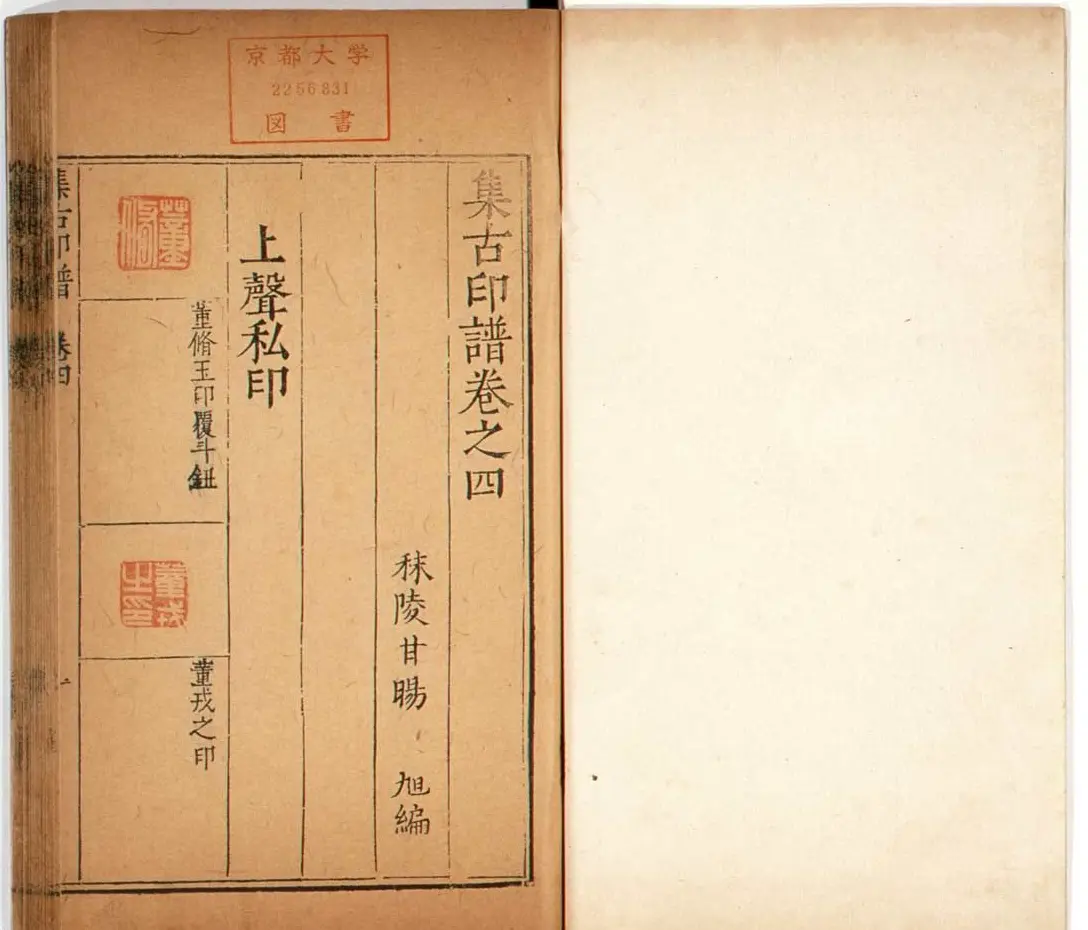 京都大学
2256831
図書
集古印譜卷之四
秣陵甘暘 旭編
上聲私印
董脩
董脩玉印覆斗鈕
董戎之印
董戎之印
集古印譜 卷四